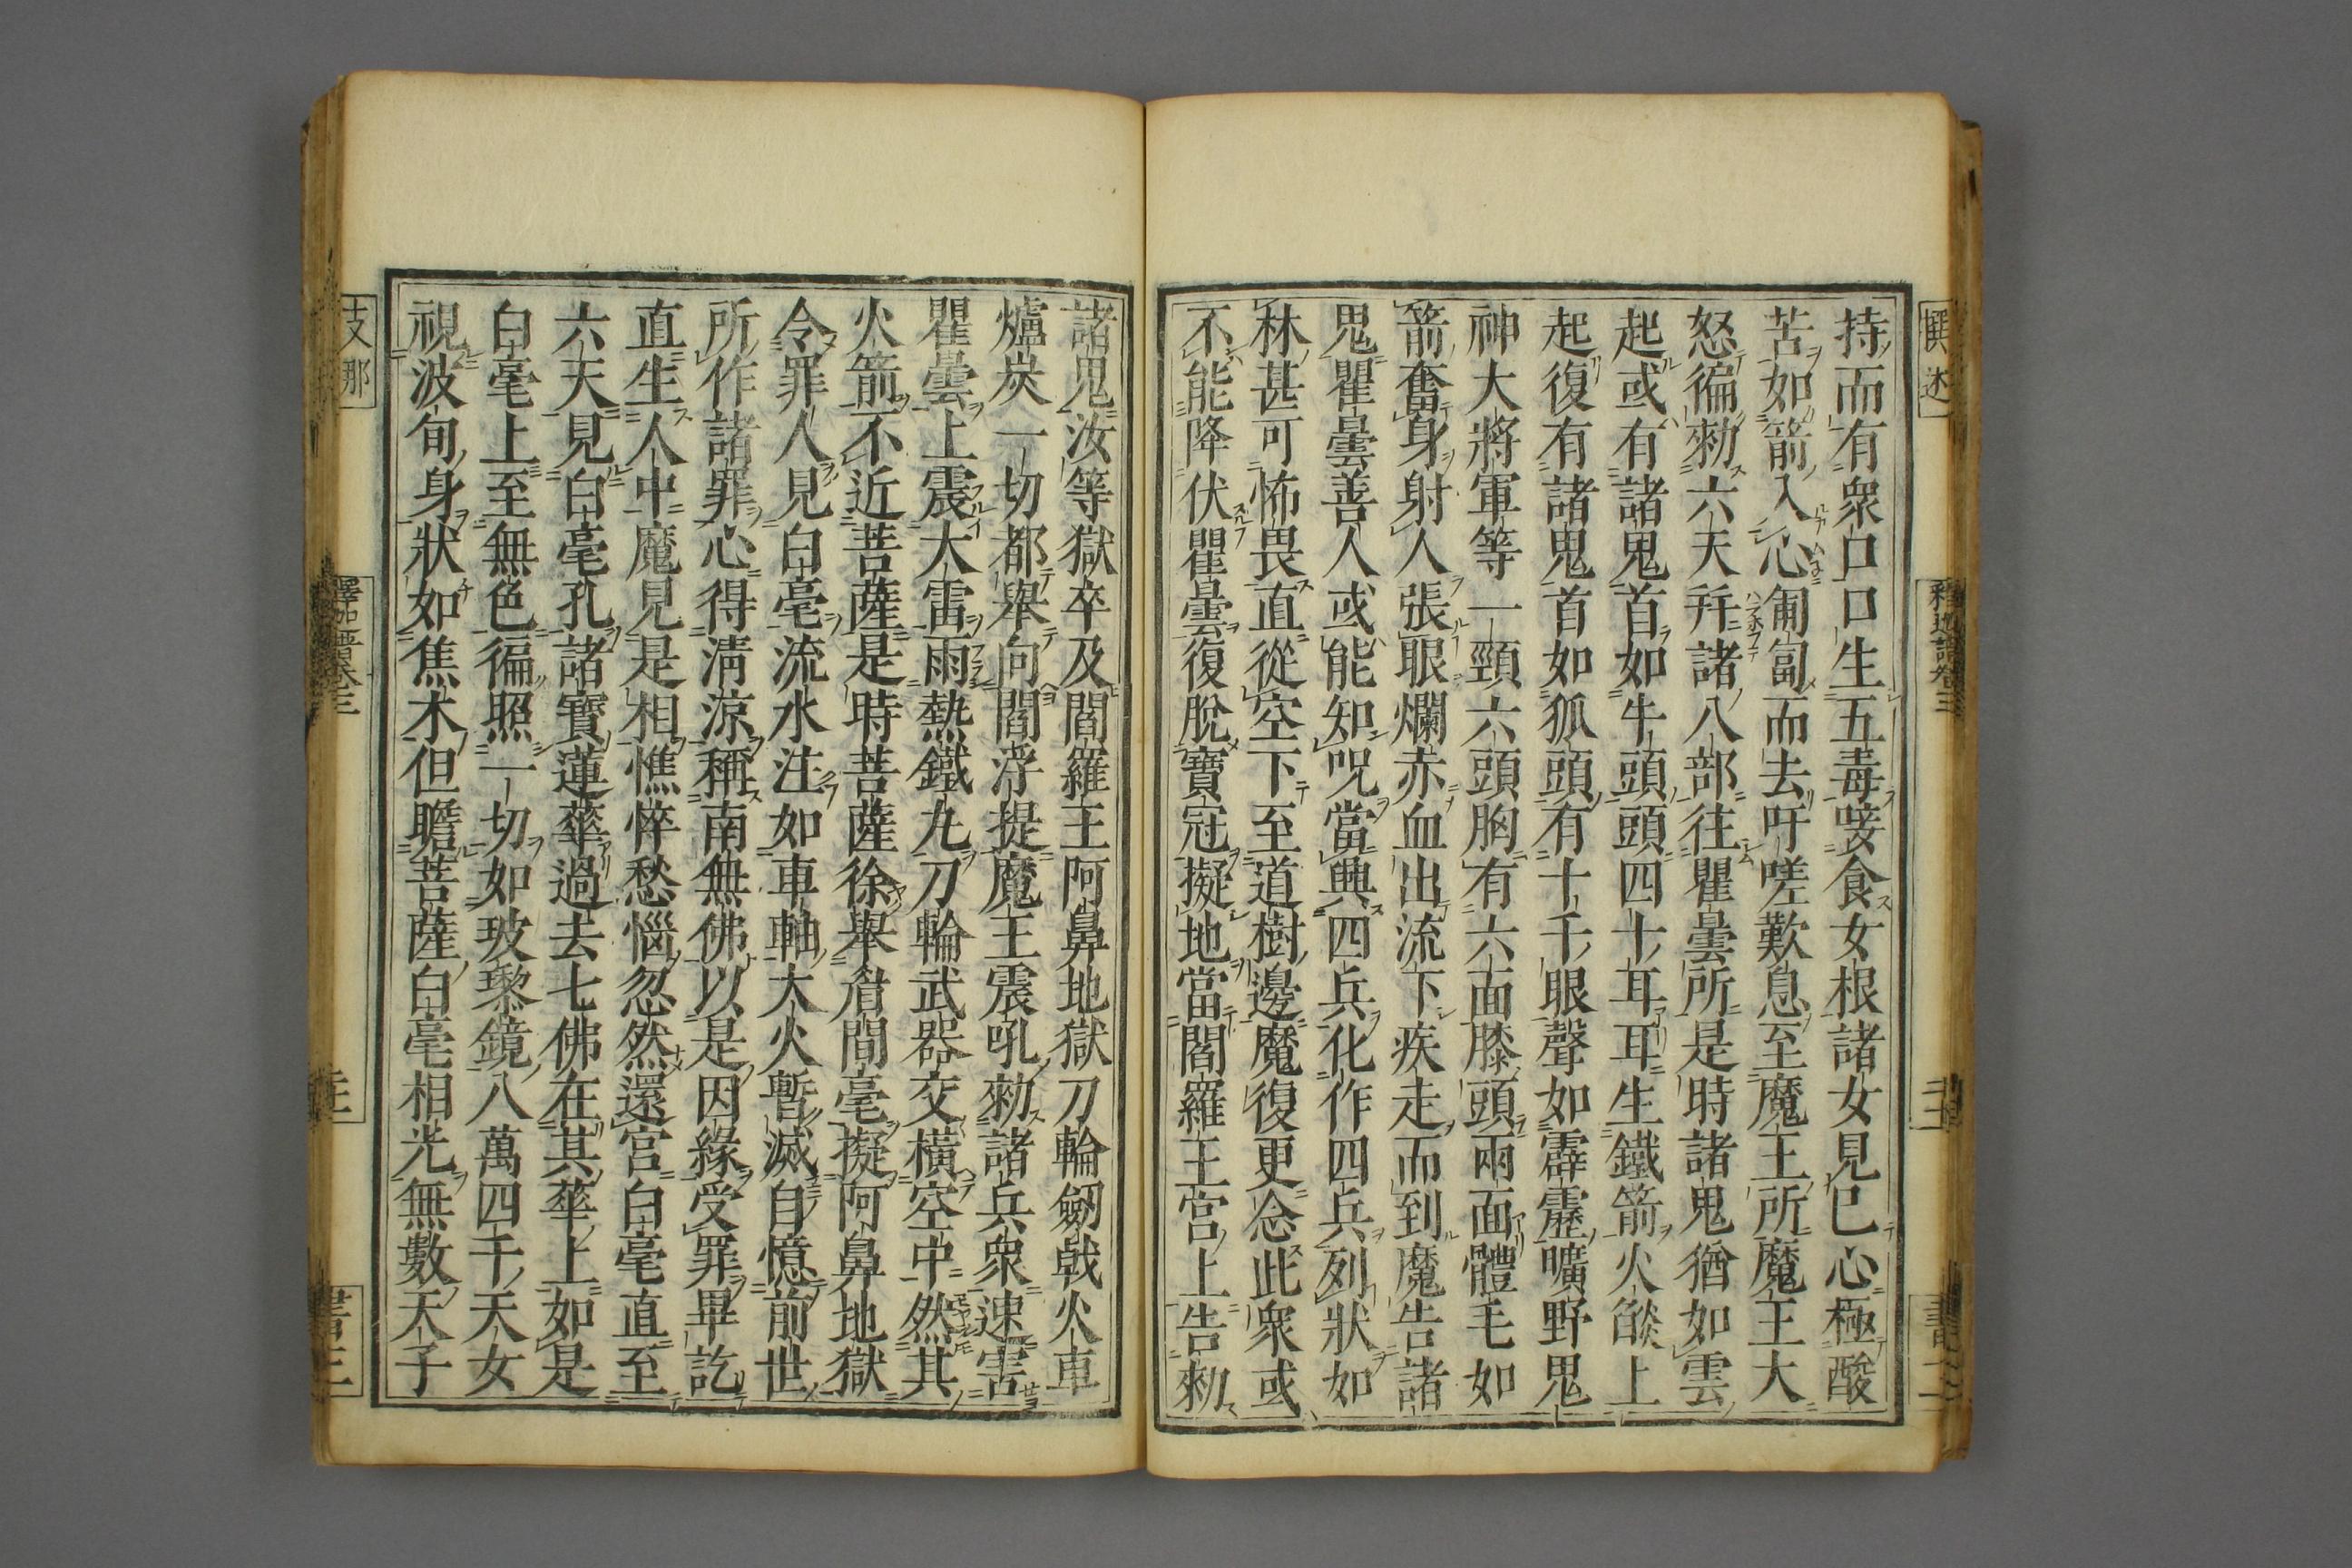 持而有衆口口生五毒唼食女根諸女見已心極酸
苦如箭入心匍匐而去吁嗟歎息至魔王所魔王大
怒徧勑六天幷諸八部往瞿曇所是時諸鬼猶如雲
起或有諸鬼首如牛頭頭四十耳耳生鐵箭火燄上
起復有諸鬼首如狐頭有十千眼聲如霹靂曠野鬼
神大將軍等一頸六頭胸有六面膝頭兩面體毛如
箭奮身射人張眼爛赤血出流下疾走而到魔告諸
鬼瞿曇善人或能知呪當興四兵化作四兵列狀如
林甚可怖畏直從空下至道樹邊魔復更念此衆或
不能降伏瞿曇復脫寶冠擬地當閻羅王宮上告勑
諸鬼汝等獄卒及閻羅王阿鼻地獄刀輪劒戟火車
爐炭一切都舉向閻浮提魔王震吼勑諸兵衆速害
瞿曇上震大雷雨熱鐵丸刀輪武器交橫空中然其
火箭不近菩薩是時菩薩徐舉眉間毫擬阿鼻地獄
令罪人見白毫流水注如車軸大火暫滅自憶前世
所作諸罪心得淸涼稱南無佛以是因緣受罪畢訖
直生人中魔見是相憔悴愁惱忽然還宮白毫直至
六天見白毫孔諸寶蓮華過去七佛在其華上如是
白毫上至無色徧照一切如玻瓈鏡八萬四千天女
視波旬身狀如焦木但瞻菩薩白毫相光無數天子
支那
釋迦譜卷三